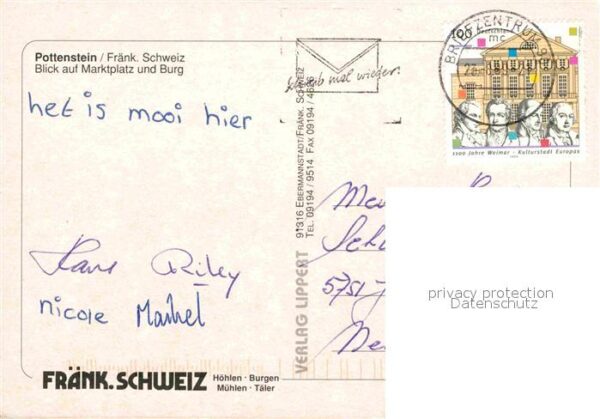 Pottenstein / Fränk. Schweiz
Blick auf Marktplatz und Burg
het is mooi hier
Hans Riley
nicole
FRÄNK. SCHWEIZ
Höhlen · Burgen
Mühlen · Täler
VERLAG LIPPERT
91316 EBERMANNSTADT/FRÄNK. SCHWEIZ
TEL. 09194 / 9514 FAX 09194 /
Schreib mal wieder!
100
BRIEFZENTRUM
mc
1100 Jahre Weimar - Kulturstadt Europas
5751
privacy protection
Datenschutz